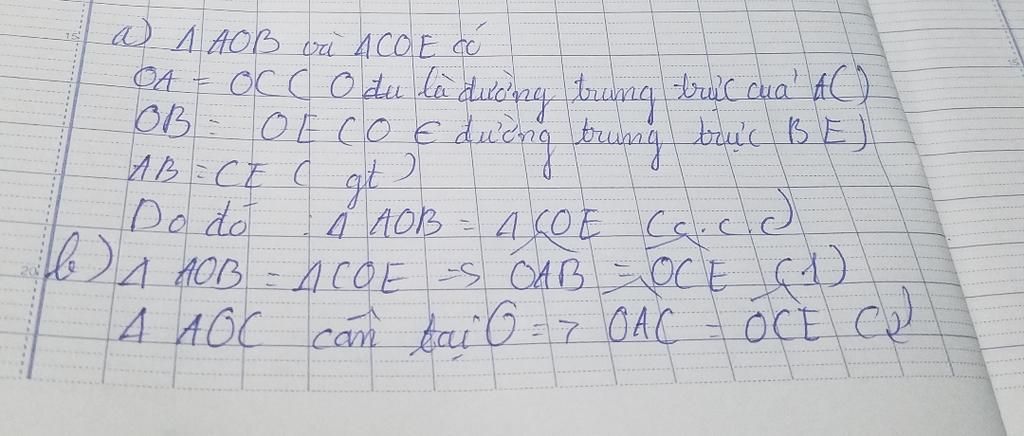 a) Δ AOB và ΔCOE có
OA = OC ( O du là đường trung trực của AC)
OB = OE ( O ∈ đường trung trực BE)
AB = CE ( gt )
Do đó Δ AOB = Δ COE (c.c.c)
b) Δ AOB = Δ COE => OAB = OCE (1)
Δ AOC cân tại O => OAC = OCE (2)
15
20